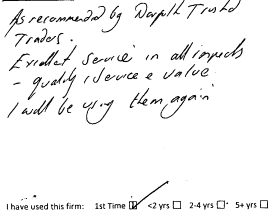 As recommended by Norfolk Trusted
Traders.
Excellent Service in all respects
- quality, service & value
I will be using them again
I have used this firm: 1st Time <2 yrs 2-4 yrs 5+ yrs